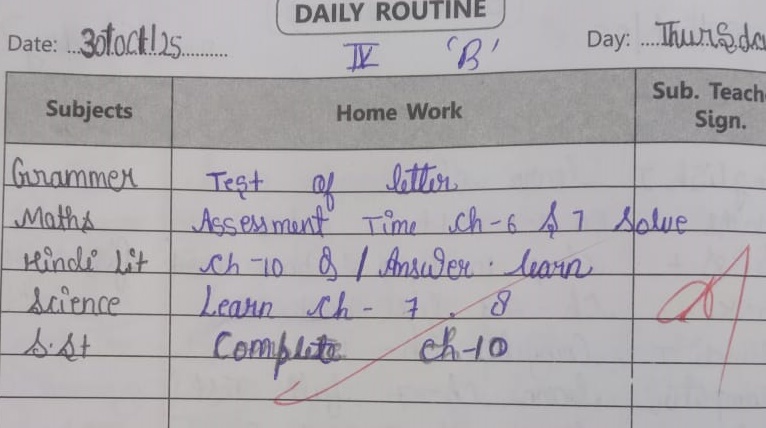 DAILY ROUTINE
Date: 30 Oct/25 IV 'B' Day: Thursda
Subjects Home Work Sub. Teach Sign.
Grammer Test of letter
Maths Assessment Time ch-6 & 7 Solve
Hindi Lit ch-10 Q / Answer. learn
Science Learn ch- 7, 8
S.St Complete ch-10